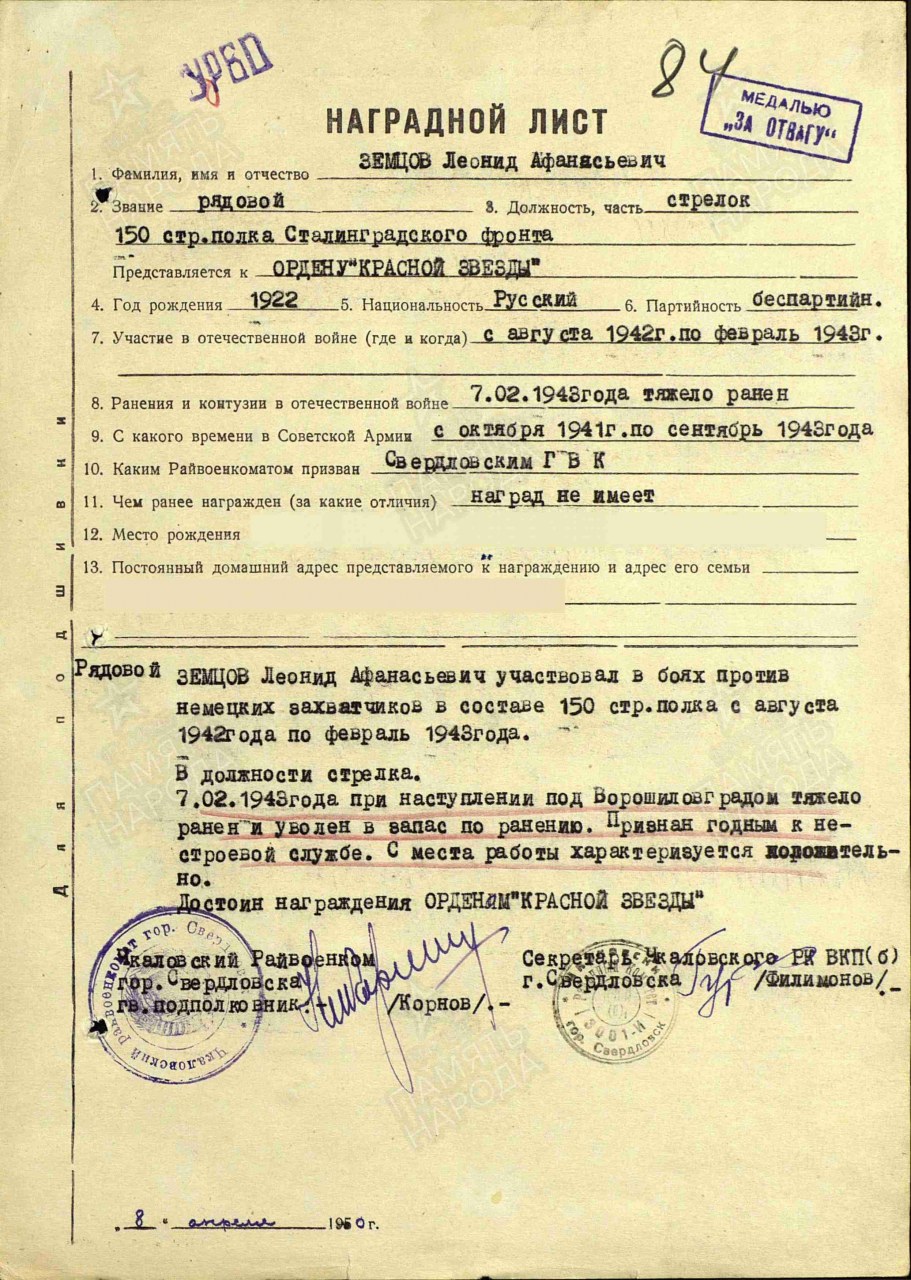 УРБО
84
МЕДАЛЬЮ
„ЗА ОТВАГУ“
НАГРАДНОЙ ЛИСТ
1. Фамилия, имя и отчество ЗЕМЦОВ Леонид Афанасьевич
2. Звание рядовой 3. Должность, часть стрелок
150 стр.полка Сталинградского фронта
Представляется к ОРДЕНУ"КРАСНОЙ ЗВЕЗДЫ"
4. Год рождения 1922 5. Национальность Русский 6. Партийность беспартийн.
7. Участие в отечественной войне (где и когда) с августа 1942г.по февраль 1943г.
8. Ранения и контузии в отечественной войне 7.02.1943года тяжело ранен
9. С какого времени в Советской Армии с октября 1941г.по сентябрь 1943года
10. Каким Райвоенкоматом призван Свердловским Г В К
11. Чем ранее награжден (за какие отличия) наград не имеет
12. Место рождения
13. Постоянный домашний адрес представляемого к награждению и адрес его семьи
Для подшивки
Рядовой ЗЕМЦОВ Леонид Афанасьевич участвовал в боях против
немецких захватчиков в составе 150 стр.полка с августа
1942года по февраль 1943года.
В должности стрелка.
7.02.1943года при наступлении под Ворошиловградом тяжело
ранен и уволен в запас по ранению. Признан годным к не-
строевой службе. С места работы характеризуется положитель-
но.
Достоин награждения ОРДЕНОМ"КРАСНОЙ ЗВЕЗДЫ"
Чкаловский Райвоенком
гор.Свердловска
гв.подполковник.- /Корнов/.-
Секретарь Чкаловского РК ВКП(б)
г.Свердловска /Филимонов/.-
Чкаловский райвоенкомат гор. Свердловск
гор. Свердловск
„8“ апреля 1950г.
ПАМЯТЬ
НАРОДА